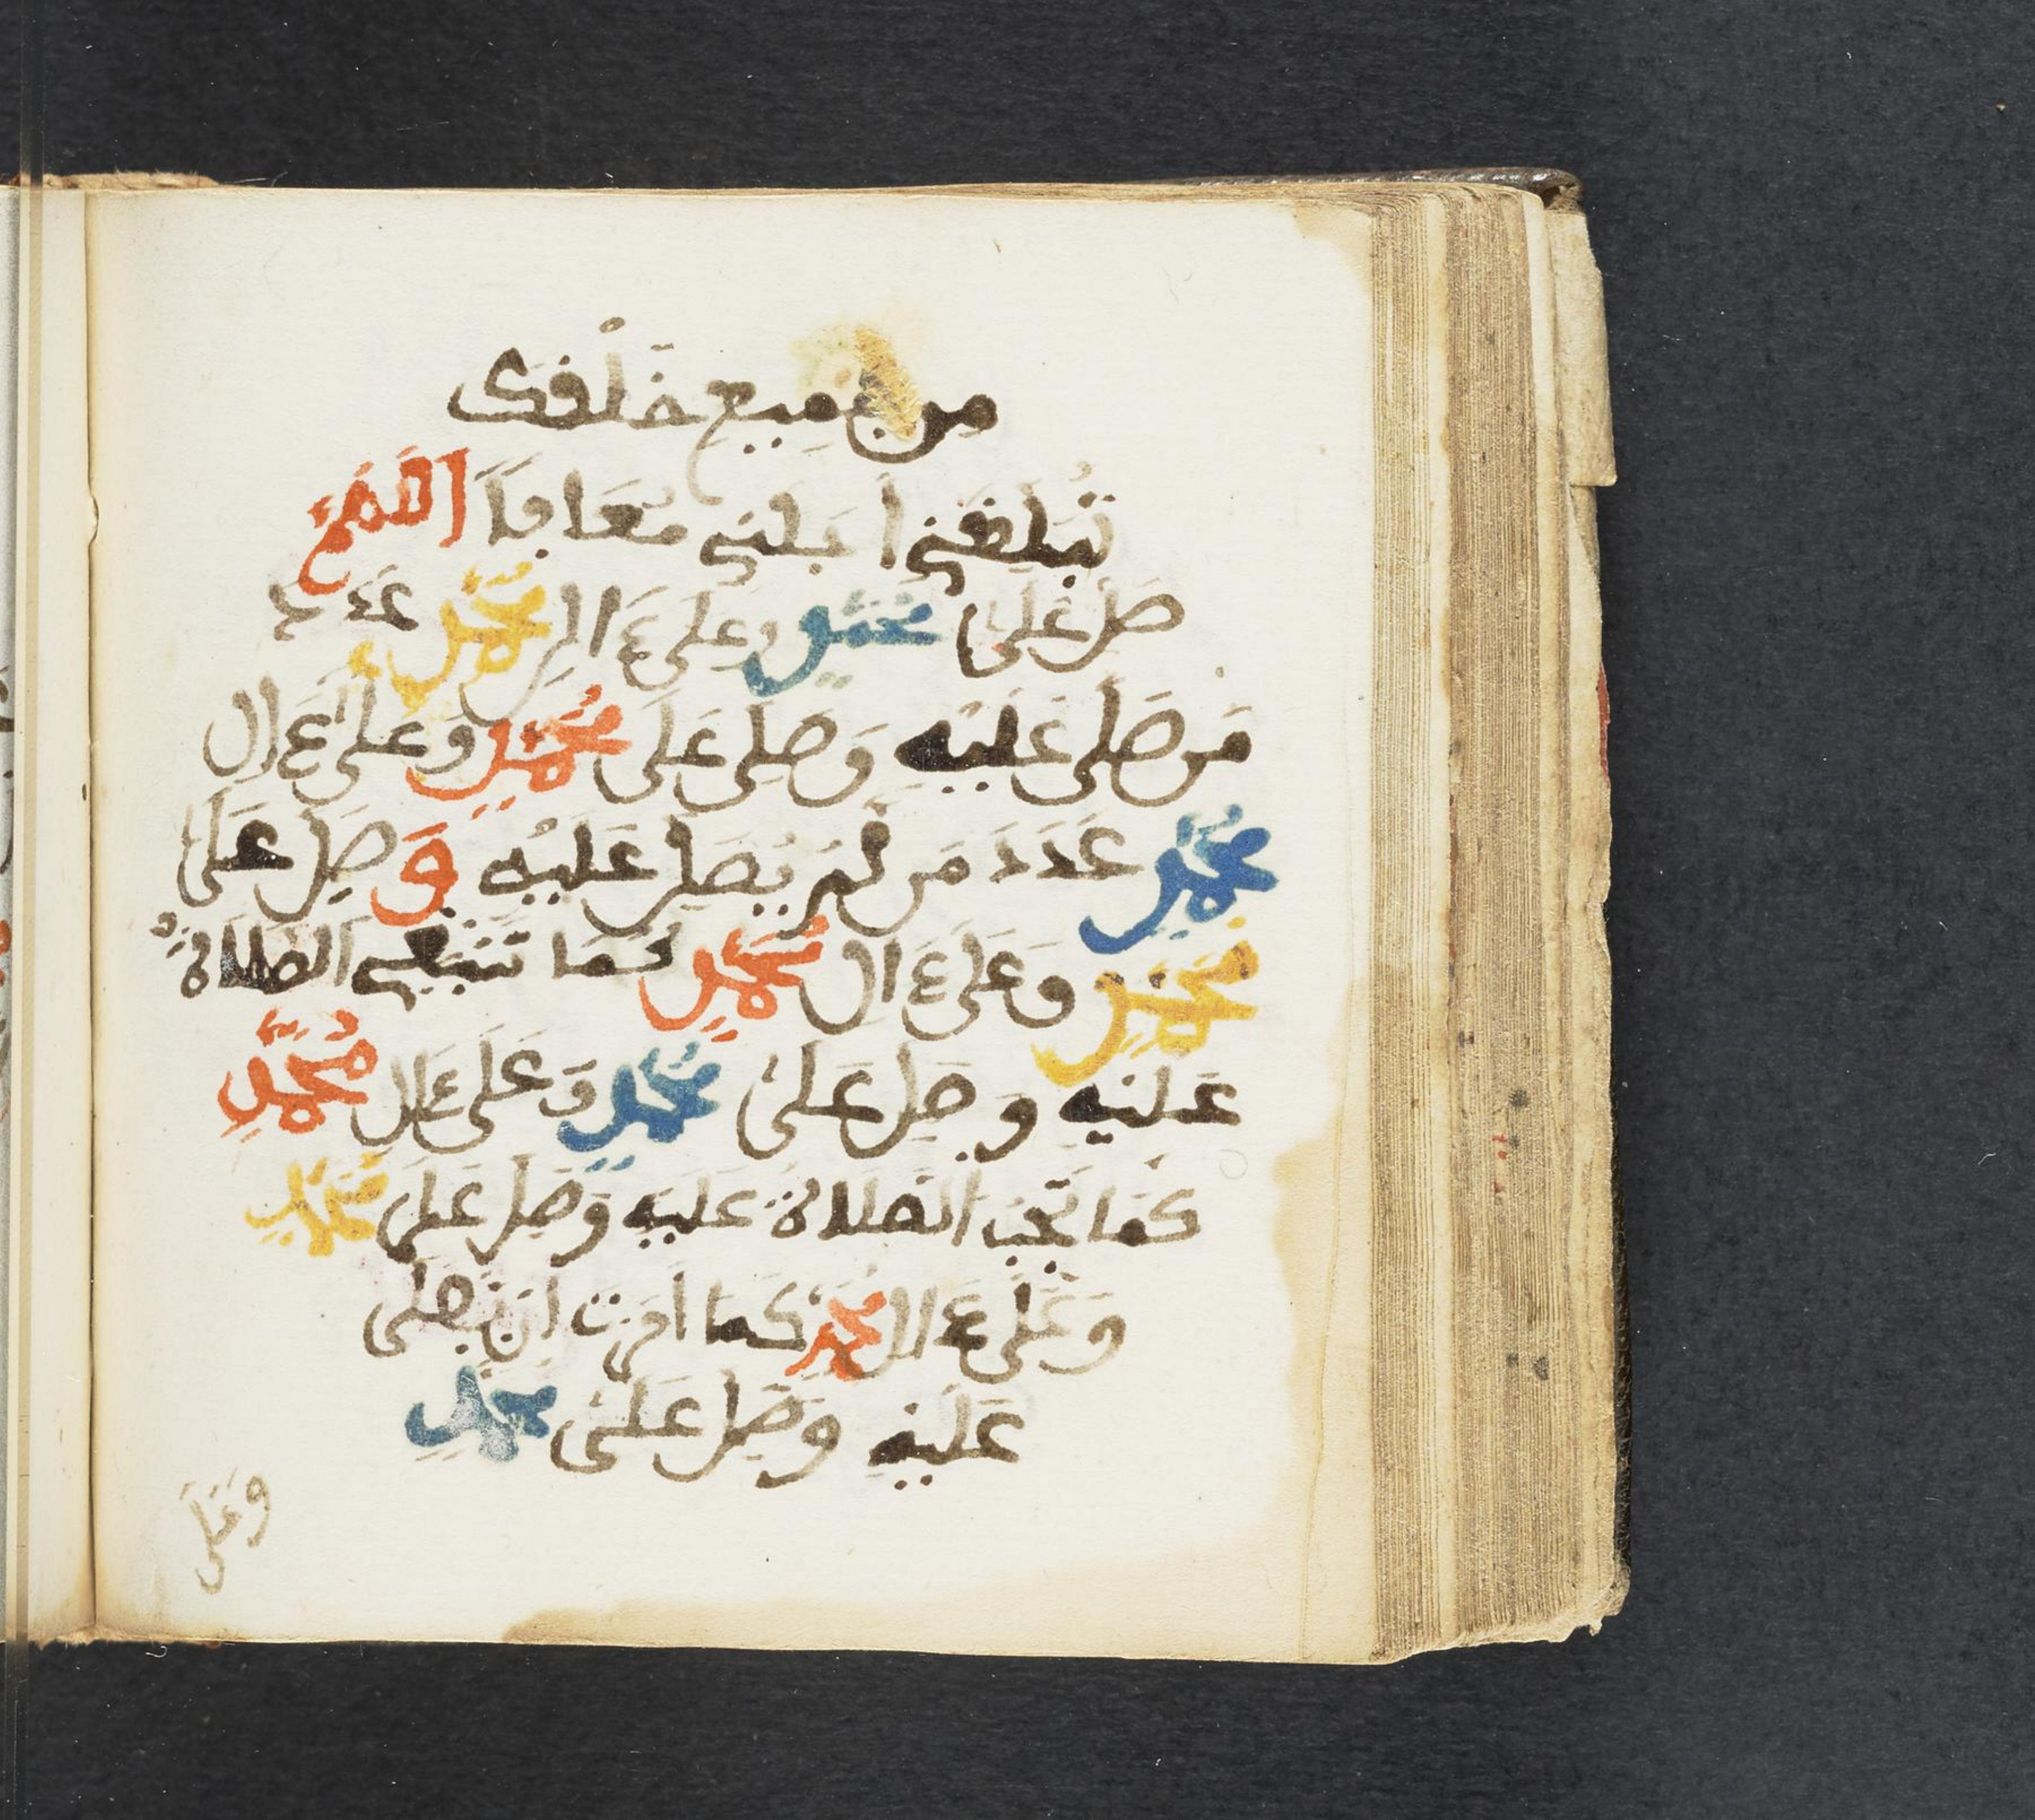 من جميع خلفك
تبلغني ا بلني معا بلا اللهم
صل على محمد وعلى ءال محمد عدد
من صلى عليه وصلى على محمد وعلى ءال
محمد عدد من لم يصل عليه وصل على
محمد وعلى ءال محمد كما تنبغي الصلاة
عليه وصل على محمد وعلى ءال محمد
كما تجب الصلاة عليه وصل على محمد
وعلى ءال محمد كما امرت ان يصلى
عليه وصل على محمد
وعلى